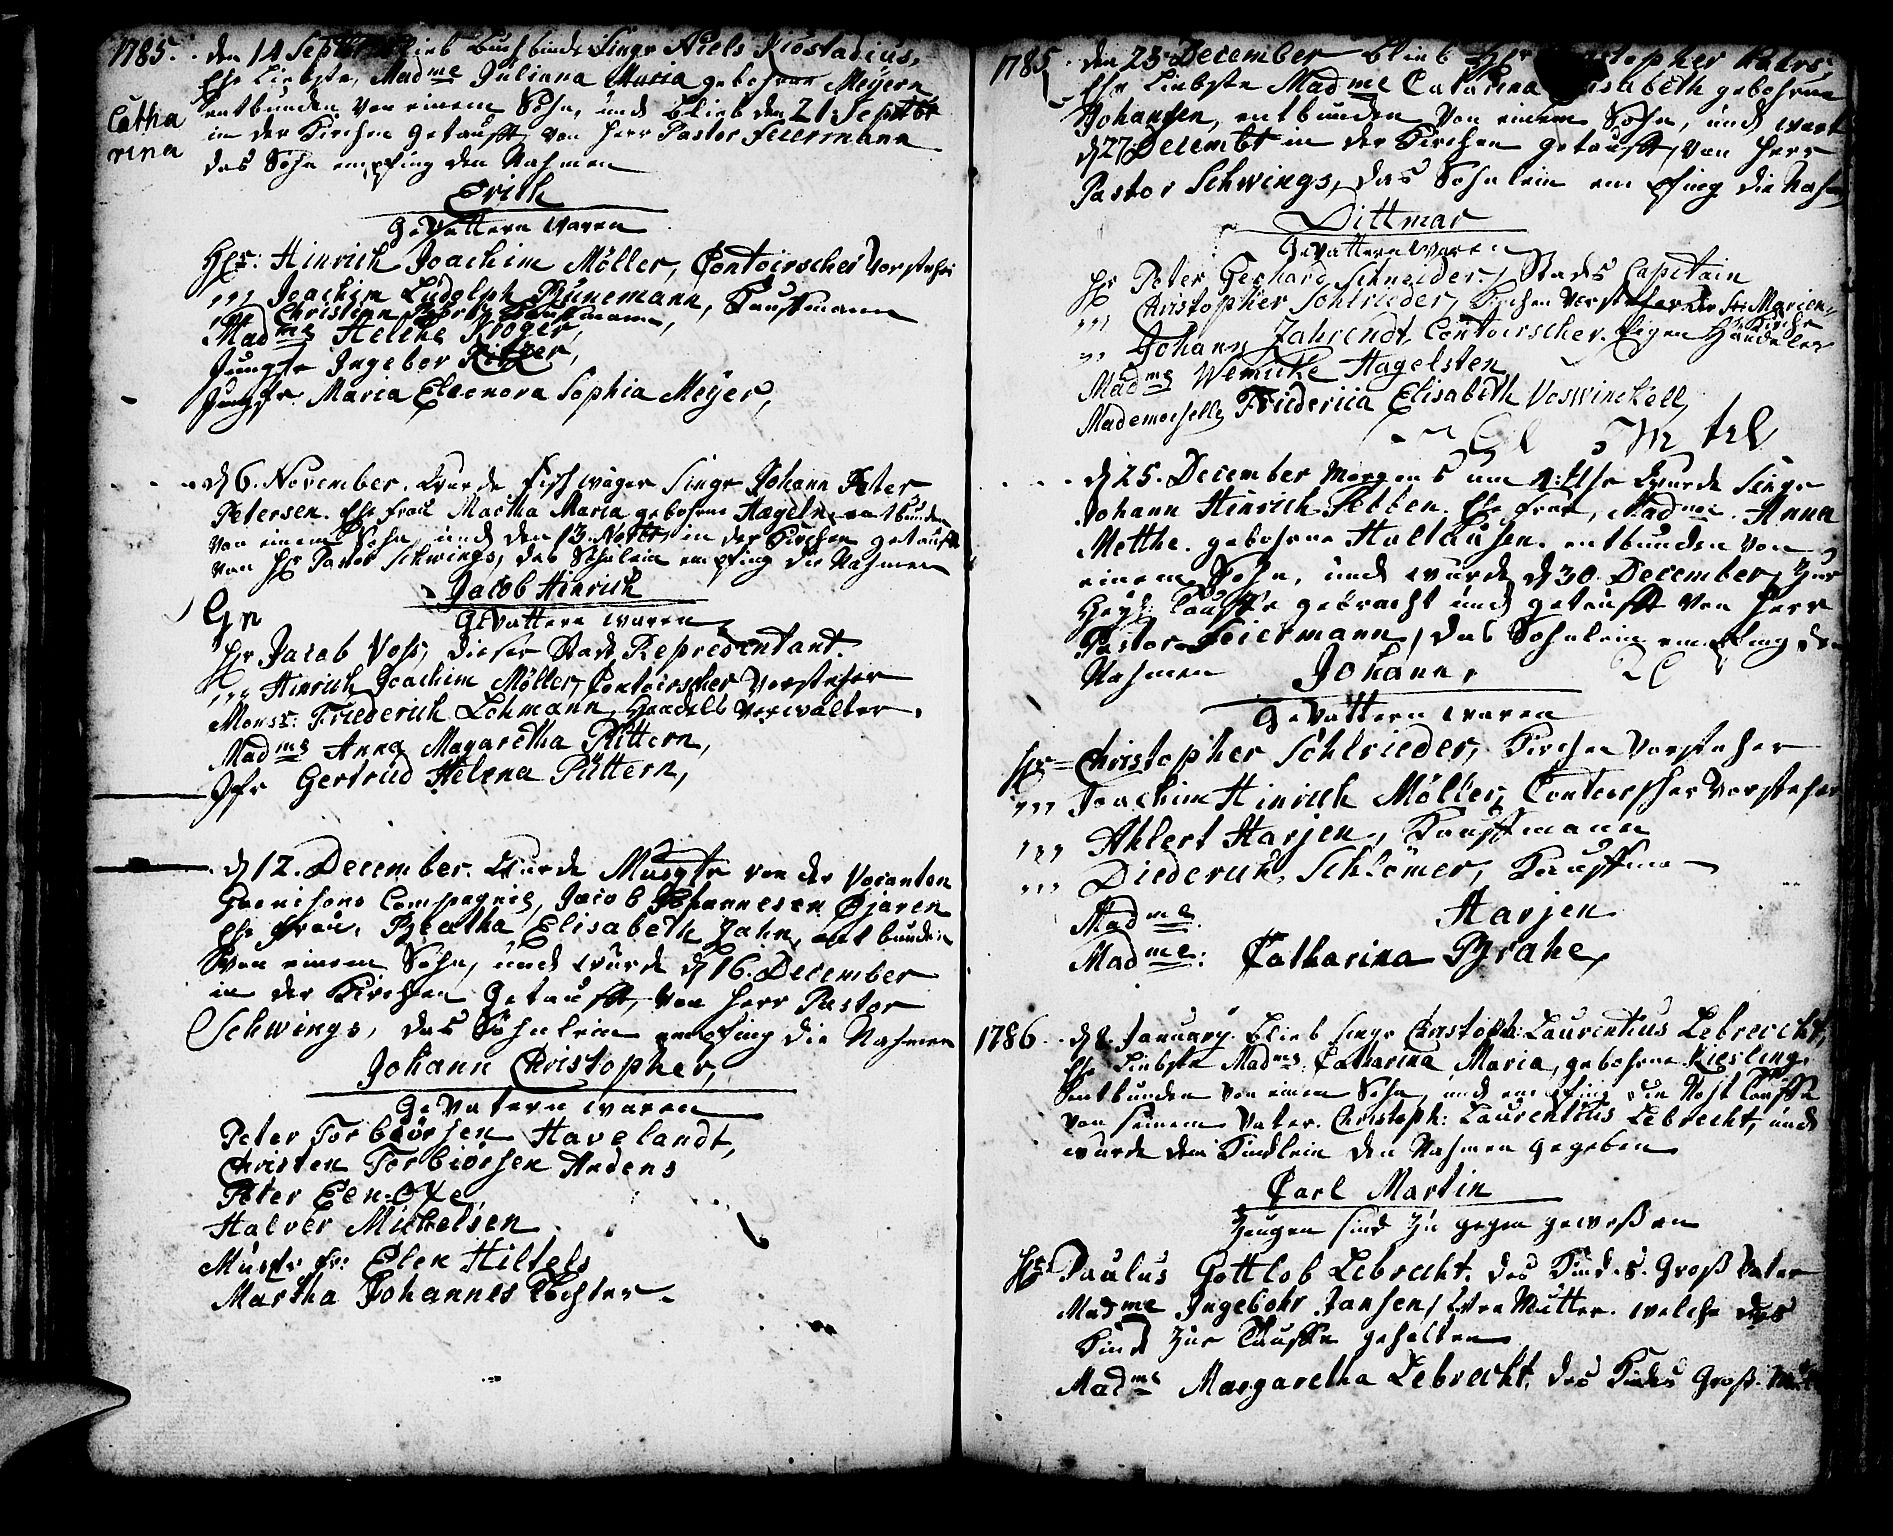 1785. den 14 Septbr blieb Buchbinder Singr Niels Kiöstadius,
Ehe Liebste, Madme Juliana Maria gebohrne Meyern
entbunden von einem Sohn, und blieb den 21 Septbr
Catharina
in der Kirchen getaufft von Herr Pastor Feiermann
das Sohn empfing den Nahmen
Erich
Gevattern waren
Hr: Hinrich Joachim Möller, Contoirscher Vorsteher
,,, Joachim Ludolph Bünemann, Kauffmann
,,, Christian
Madme Helche Kroger,
Jungfr Ingebor Ritzer,
Jungfr Maria Eleonora Sophia Meyer,
d 6. November. Wurde Fischwäger Singr Johann Peter
Petersen. Ehe Frau Martha Maria gebohrne Hageln entbunden
von einem Sohn, und den 13. Novbr in der Kirchen getaufft
von Hr Pastor Schwings, das Söhnlein empfing die Nahmen
Jacob Hinrich
Gevattern waren
Hr Jacob Voss, dieser Stads Repredentant.
,,, Hinrich Joachim Möller, Contoirscher Vorsteher
Monsr: Friederich Lohmann, Handels Verwalter,
Madme Anna Magaretha Püttern,
Jfr Gertrud Helena Püttern,
d 12. December. Wurde Musqtr von der Vacanten
Guarnisons Compagnie, Jacob Johannesen Öjaren
Ehe Frau, Beatha Elisabeth Jahn, entbunden
von einem Sohn, und wurde d 16. December
in der Kirchen Getaufft, von Herr Pastor
Schwings, das Söhnlein empfing die Nahmen
Johann Christopher,
Gevatern waren
Peter Torbiörsen Havelandt,
Christen Torbiörsen Andens
Peter Een-Oxe
Halver Michelsen
Musqtr fr: Elen Hiltels
Martha Johannes Tochter.
1785. den 23 December blieb Hr Christopher
Ehe Liebste Madme Catarina Elisabeth gebohrne
Johansen, entbunden von einem Sohn, und wart
d 27 Decembr in der Kirchen getaufft, von Herr
Pastor Schwings, das Söhnlein empfing die Nahm
Dittmar
Gevattern waren
Hr Peter Gerhard Schneider, Stads Capitain
,,, Christopher Schlrieder, Kirchen Vorsteher der St: Marien-Kirche
,, Johann Jahrendt, Contoirscher. Eigen Händeler
Madme Wemicke Hagelsten
Mademoiselle Friedericia Elisabeth Voswinckell
d 25. December Morgens um 4: Uhr Wurde Singr
Johann Hinrich Sebben. Ehe Frau, Madme. Anna
Metthe. gebohrne Holthusen. entbunden von
einem Sohn, und wurde d 30. December, zur
Heyl: Tauffe gebracht und getaufft von Herr
Pastor Feiermann, das Söhnlein empfing den
Nahmen Johann,
Gevattern waren
Hr Christopher Schlrieder, Kirchen Vorsteher
,,, Joachim Hinrich Möller, Contoirscher Vorsteher
,,, Ahlert Harjen, Kauffmann
,,, Diederich, Schlömer, Kauffman
Madme. Harjen
Madme: Catharina Brahe,
1786. d 8. January. blieb Singr Christoph: Laurentius Lebrecht,
Ehe Liebste Madme. Catharina Maria, gebohrne Kiesling.
entbunden von einem Sohn, und empfing die Noht Tauffe
von seinem Vater. Christoph: Laurentius Lebrecht, und
wurde dem Kindlein den Nahmen gegeben
Carl Martin
Zeugen sind zu gegen gewesen
Hr Paulus Gottlob Lebrecht. des Kindes Groß Vater
Madme Ingebohr Jansen, Wee Mutter. welche das
Kind zur Tauffe gehalten
Madme Margaretha Lebrecht, des Kindes Groß